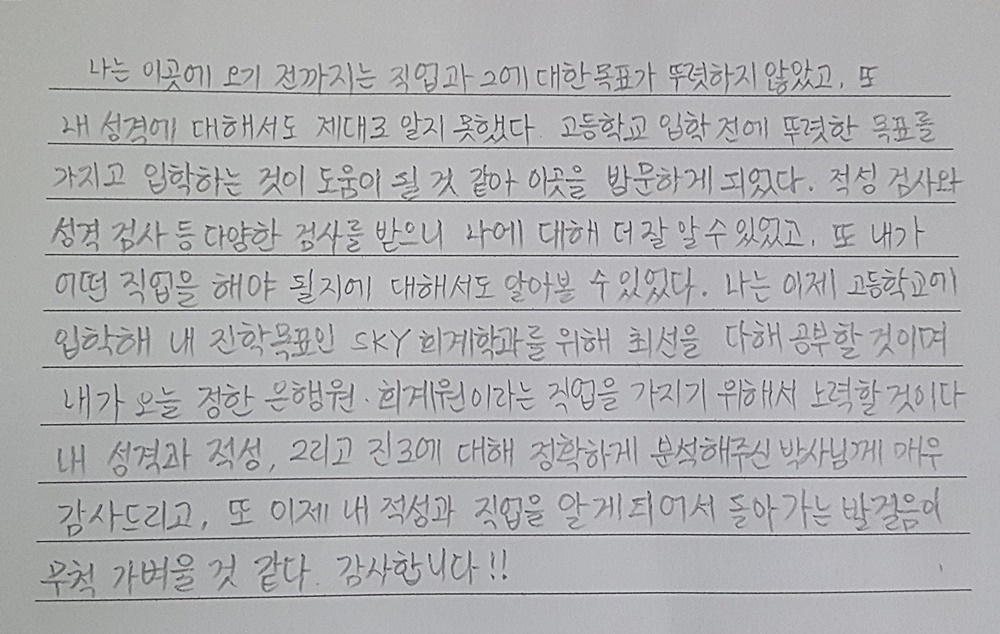 나는 이곳에 오기 전까지는 직업과 그에 대한 목표가 뚜렷하지 않았고, 또
내 성격에 대해서도 제대로 알지 못했다. 고등학교 입학 전에 뚜렷한 목표를
가지고 입학하는 것이 도움이 될 것 같아 이곳을 방문하게 되었다. 적성 검사와
성격 검사 등 다양한 검사를 받으니 나에 대해 더 잘 알 수 있었고, 또 내가
어떤 직업을 해야 될지에 대해서도 알아볼 수 있었다. 나는 이제 고등학교에
입학해 내 진학목표인 SKY 회계학과를 위해 최선을 다해 공부할 것이며
내가 오늘 정한 은행원·회계원이라는 직업을 가지기 위해서 노력할 것이다
내 성격과 적성, 그리고 진로에 대해 정확하게 분석해주신 박사님께 매우
감사드리고, 또 이제 내 적성과 직업을 알게 되어서 돌아가는 발걸음이
무척 가벼울 것 같다. 감사합니다!!